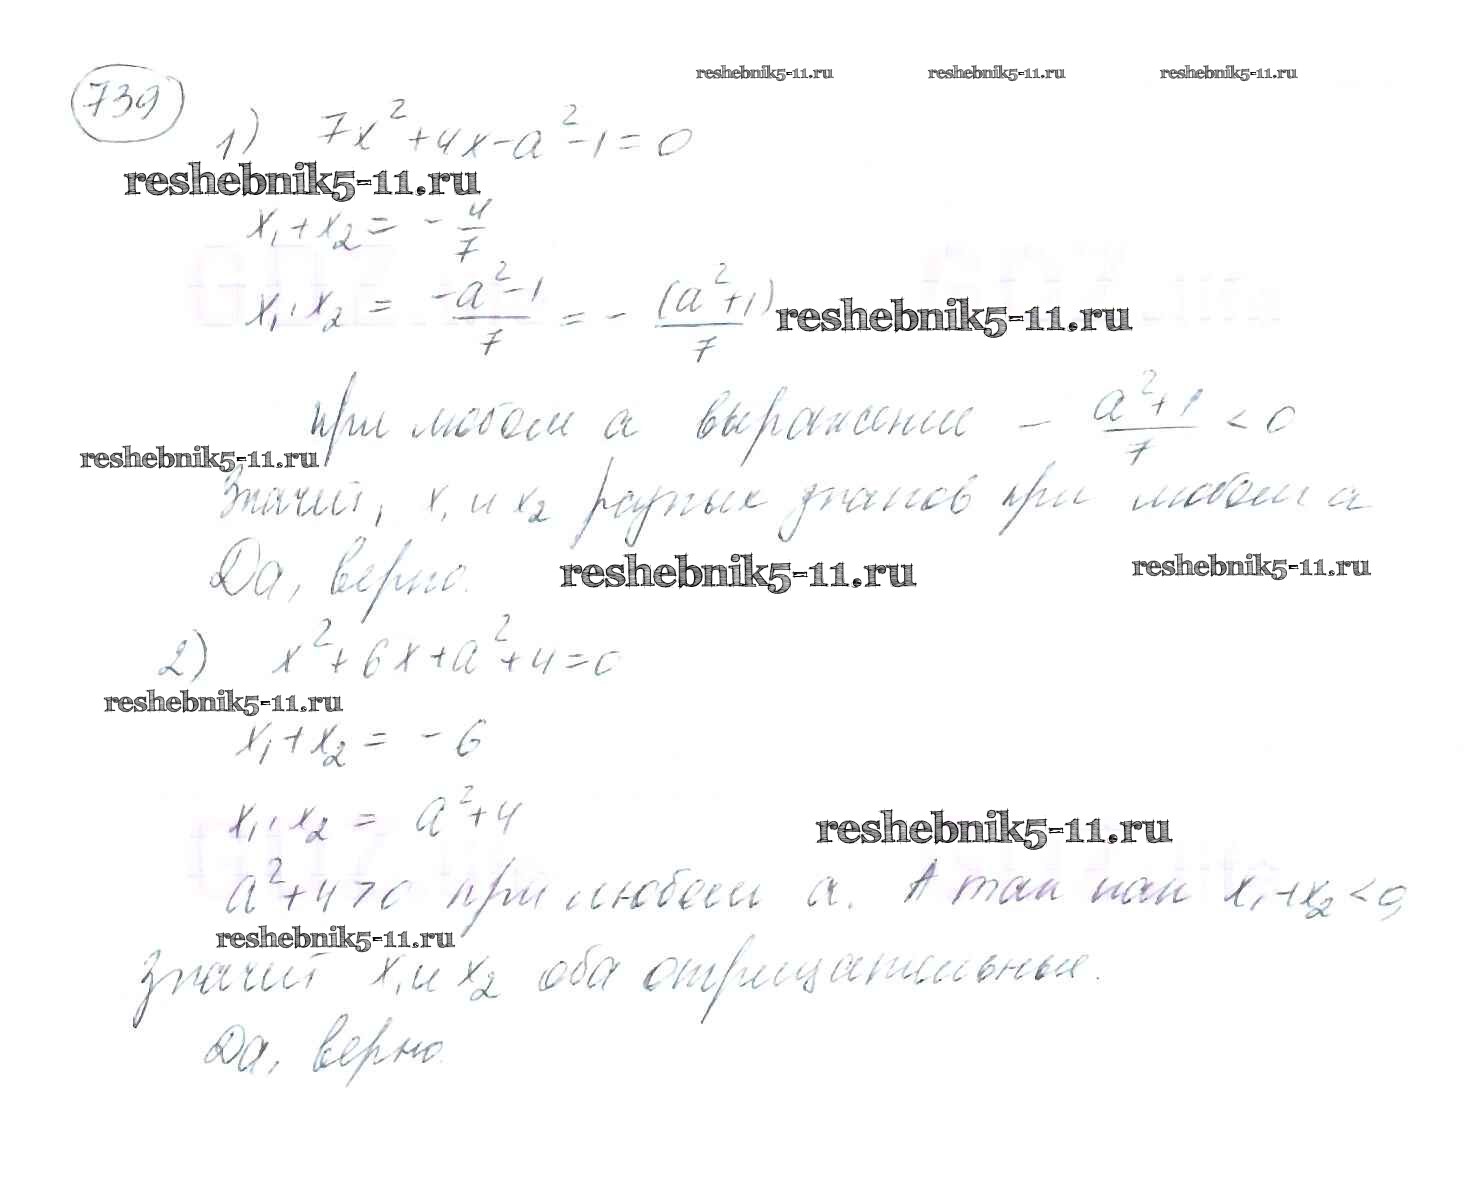 reshebnik5-11.ru reshebnik5-11.ru reshebnik5-11.ru
739
1) 7x² + 4x - a² - 1 = 0
reshebnik5-11.ru
x₁ + x₂ = - 4/7
x₁ · x₂ = (-a² - 1)/7 = - (a² + 1)/7 reshebnik5-11.ru
при любом а выражение - (a² + 1)/7 < 0
reshebnik5-11.ru
Значит, x₁ и x₂ разных знаков при любом а
Да, верно. reshebnik5-11.ru reshebnik5-11.ru
2) x² + 6x + a² + 4 = 0
reshebnik5-11.ru
x₁ + x₂ = - 6
x₁ · x₂ = a² + 4
reshebnik5-11.ru
a² + 4 > 0 при любом а. А так как x₁ + x₂ < 0,
reshebnik5-11.ru
значит x₁ и x₂ оба отрицательные.
Да, верно.